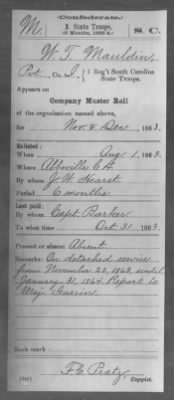 (Confederate.)
M. 1 State Troops, S. C.
(6 Months, 1863-4.)
W. T. Mauldin
Pvt, Co. I, 1 Reg't South Carolina
State Troops.
Appears on
Company Muster Roll
of the organization named above,
for Nov & Dec, 1863.
Enlisted:
When Aug 1, 1863.
Where Abbeville C.H.
By whom J. W. Hearst
Period 6 months
Last paid:
By whom Capt. Barker
To what time Oct. 31, 1863.
Present or absent Absent
Remarks: On detached service
from November 22, 1863, until
January 31, 1864. Report to
Maj. Guerin.
Book mark:
F. C. Pratz,
Copyist.